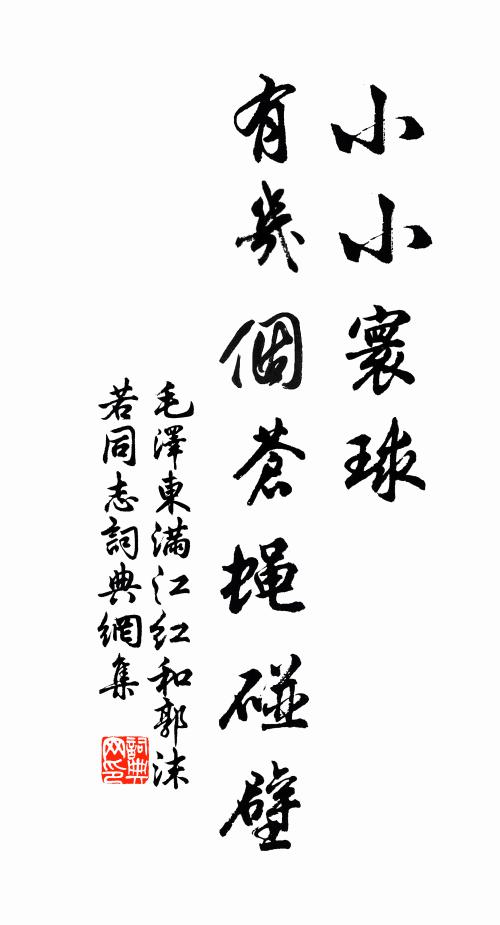 小小寰球
有幾個蒼蝇碰壁
毛澤東滿江红和郭沫
若同志詞典網集
詞典网印